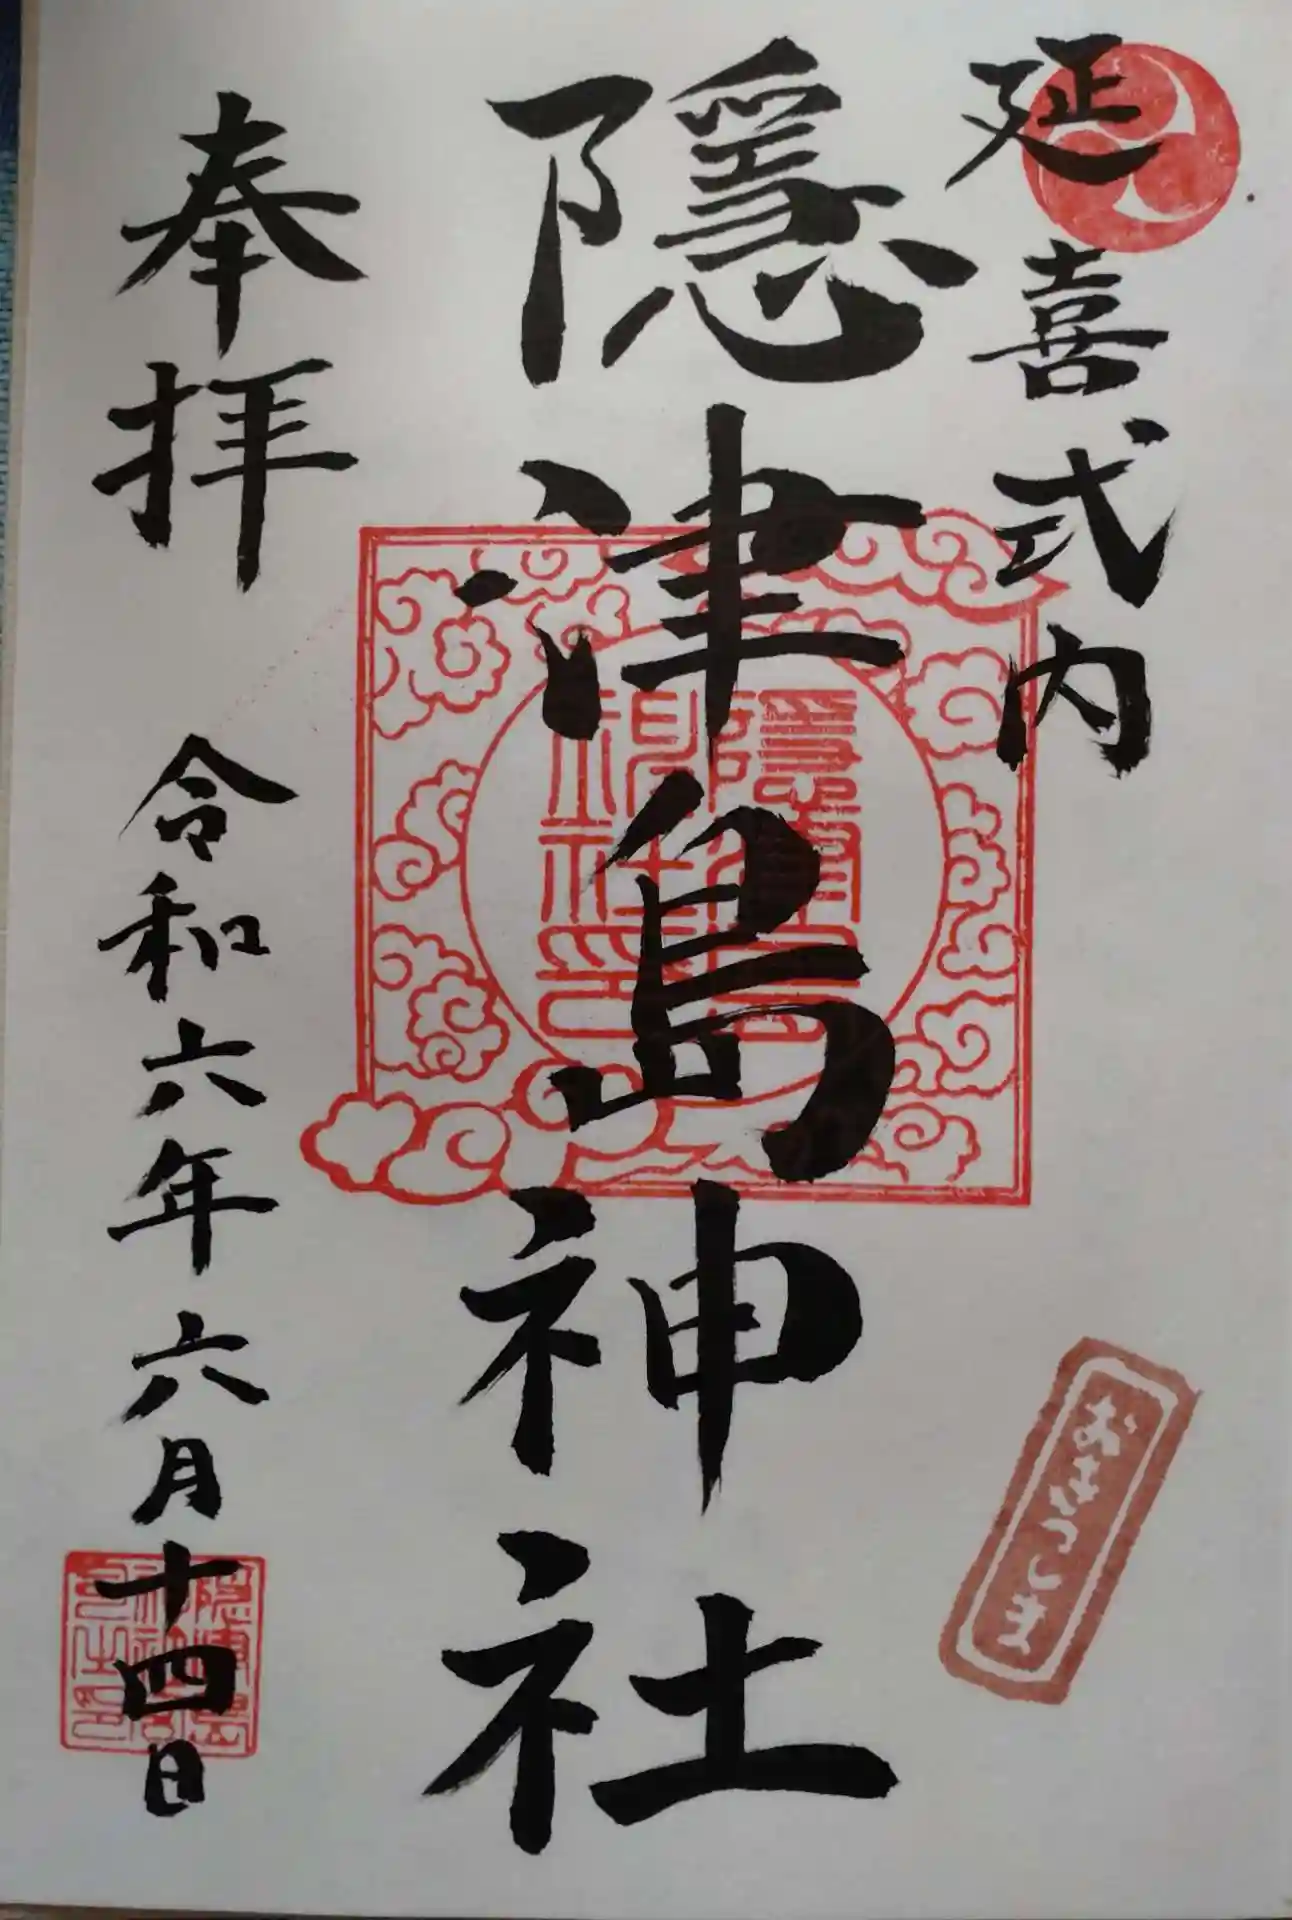 延喜式内
隠津島神社
奉拝
令和六年六月十四日
おきつしま